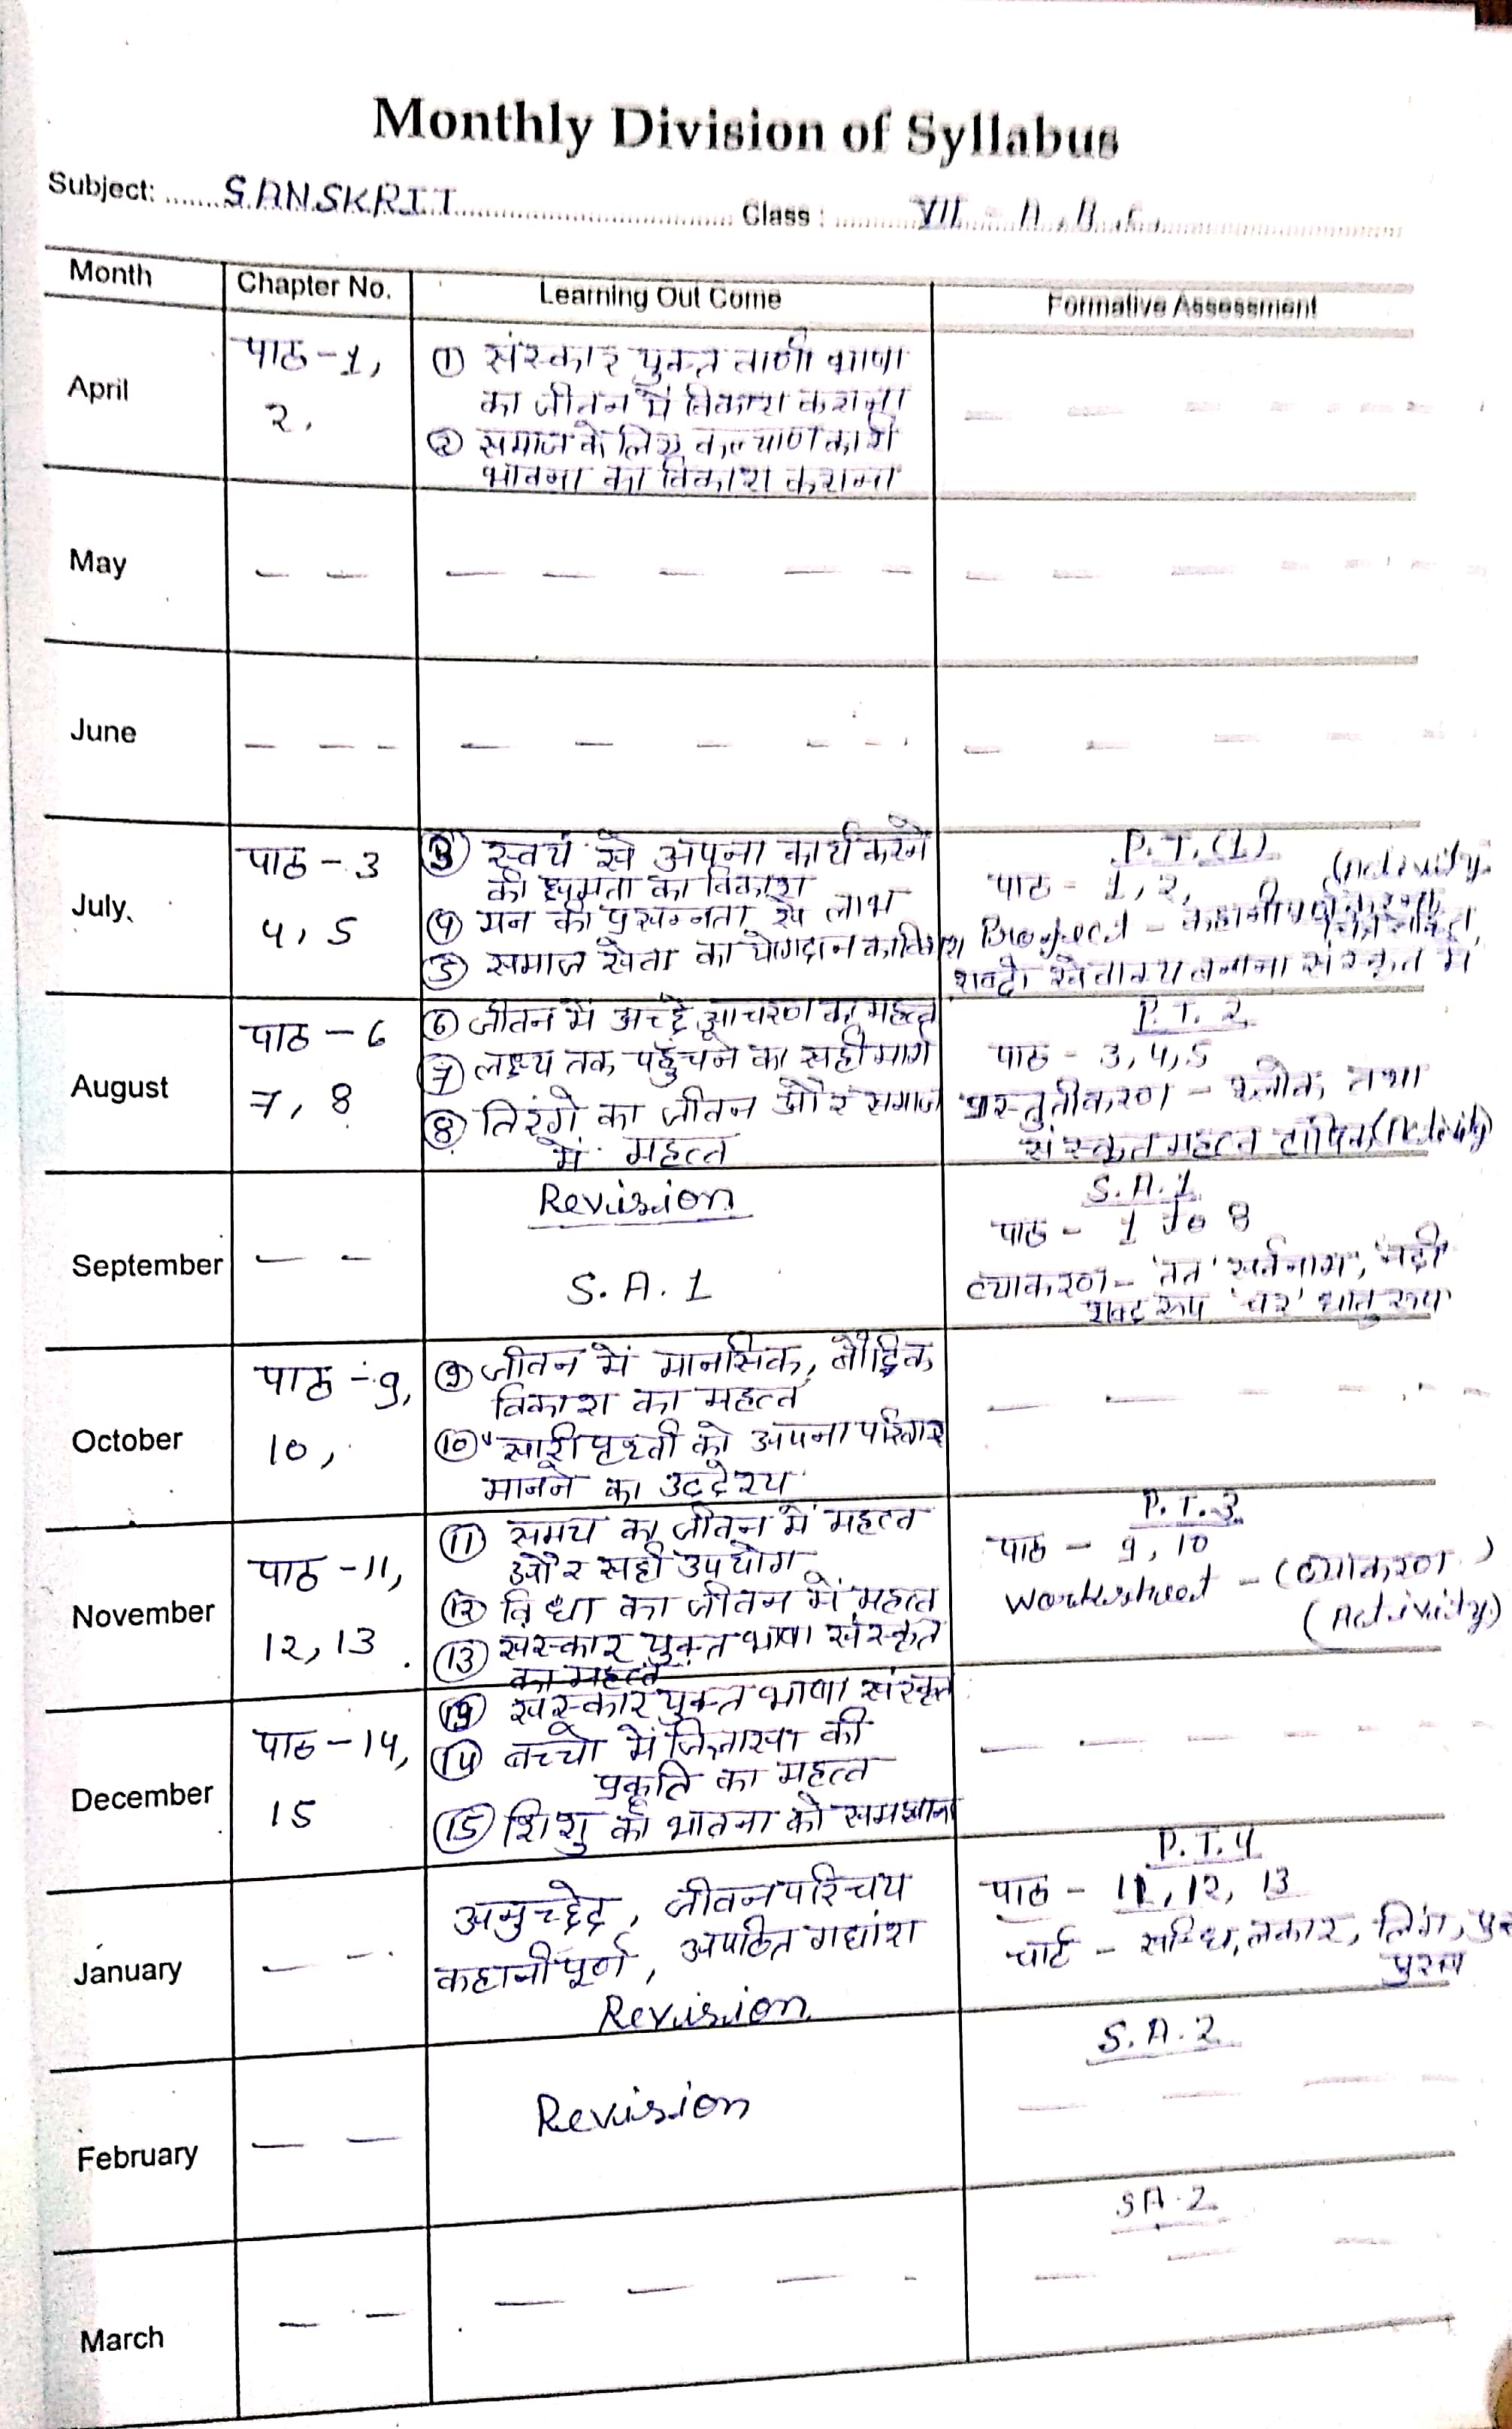 Monthly Division of Syllabus
Subject: SANSKRIT Class : VII - A, B, C
Month Chapter No. Learning Out Come Formative Assessment
April
पाठ - 1,
2,
① संस्कार युक्त वाणी भाषा
का जीवन में विकाश कराना
② समाज के लिए कल्याणकारी
भावना का विकाश कराना
May
June
July
पाठ - 3
4, 5
③ स्वयं से अपना कार्य करने
की क्षमता का विकाश
④ मन की प्रसन्नता से लाभ
⑤ समाज सेवा का योगदान का विकाश
P.T. (1)
पाठ - 1, 2, (Activity
शब्दो से वाक्य बनाना संस्कृत में
August
पाठ - 6
7, 8
⑥ जीवन में अच्छे आचरण का महत्व
⑦ लक्ष्य तक पहुंचने का सही मार्ग
⑧ तिरंगे का जीवन और समाज
में महत्व
P.T. 2
पाठ - 3, 4, 5
प्रस्तुतीकरण - श्लोक तथा
संस्कृत महत्व (Activity)
September
Revision
S.A.1
S.A.1
पाठ - 1 to 8
व्याकरण - 'तत' सर्वनाम, 'नदी'
शब्द रूप 'चर' धातु रूप
October
पाठ - 9,
10,
⑨ जीवन में मानसिक, बौद्धिक
विकाश का महत्व
⑩ सारी पृथ्वी को अपना परिवार
मानने का उद्देश्य
November
पाठ - 11,
12, 13
⑪ समय का जीवन में महत्व
और सही उपयोग
⑫ विधा का जीवन में महत्व
⑬ संस्कार युक्त भाषा संस्कृत
का महत्व
P.T.3
पाठ - 9, 10
Worksheet - (व्याकरण)
(Activity)
December
पाठ - 14,
15
संस्कार युक्त भाषा संस्कृत
⑭ बच्चो में जिज्ञासा की
प्रकृति का महत्व
⑮ शिशु की भावना को समझाना
January
अनुच्छेद, जीवन परिचय
कहानी पूर्ण, अपठित गद्यांश
Revision
P.T.4
पाठ - 11, 12, 13
चार्ट - सन्धि, लकार, लिंग,
February
Revision
S.A.2
March
SA.2